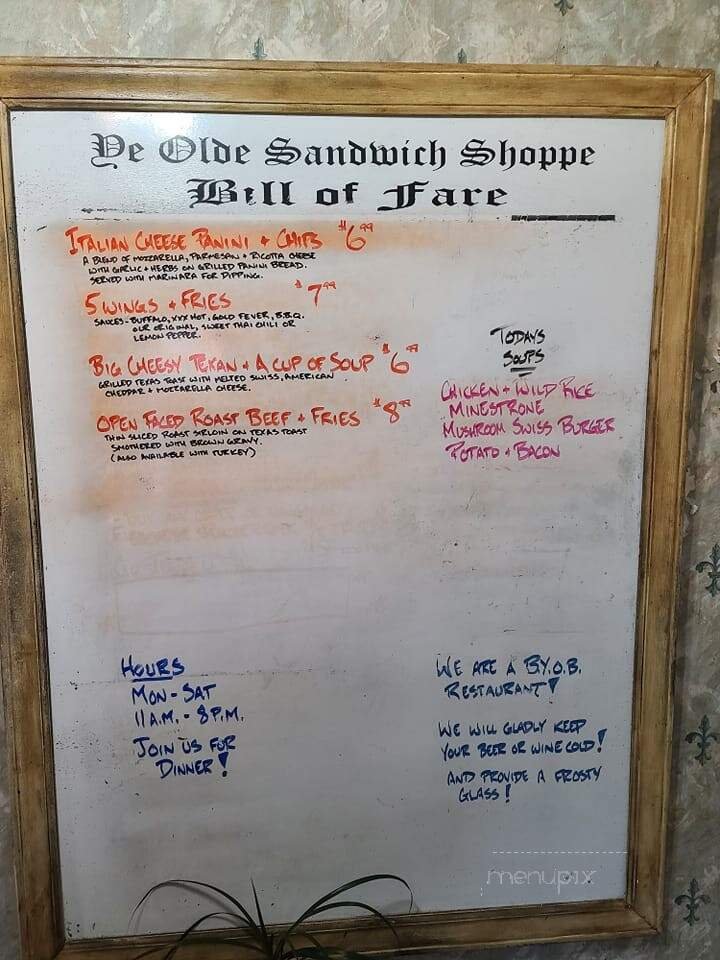 Ye Olde Sandwich Shoppe
Bill of Fare
ITALIAN CHEESE PANINI + CHIPS $6.99
A BLEND OF MOZZARELLA, PARMESAN + RICOTTA CHEESE
WITH GARLIC + HERBS ON GRILLED PANINI BREAD.
SERVED WITH MARINARA FOR DIPPING.
5 WINGS + FRIES $7.99
SAUCES - BUFFALO, XXX HOT, GOLD FEVER, B.B.Q.
OUR ORIGINAL, SWEET THAI CHILI OR
LEMON PEPPER.
BIG CHEESY TEXAN + A CUP OF SOUP $6.99
GRILLED TEXAS TOAST WITH MELTED SWISS, AMERICAN
CHEDDAR + MOZZARELLA CHEESE.
OPEN FACED ROAST BEEF + FRIES $8.99
THIN SLICED ROAST SIRLOIN ON TEXAS TOAST
SMOTHERED WITH BROWN GRAVY.
(ALSO AVAILABLE WITH TURKEY)
TODAYS
SOUPS
CHICKEN + WILD RICE
MINESTRONE
MUSHROOM SWISS BURGER
POTATO + BACON
HOURS
MON - SAT
11 A.M. - 8 P.M.
JOIN US FOR
DINNER!
WE ARE A B.Y.O.B.
RESTAURANT!
WE WILL GLADLY KEEP
YOUR BEER OR WINE COLD!
AND PROVIDE A FROSTY
GLASS!
menupix